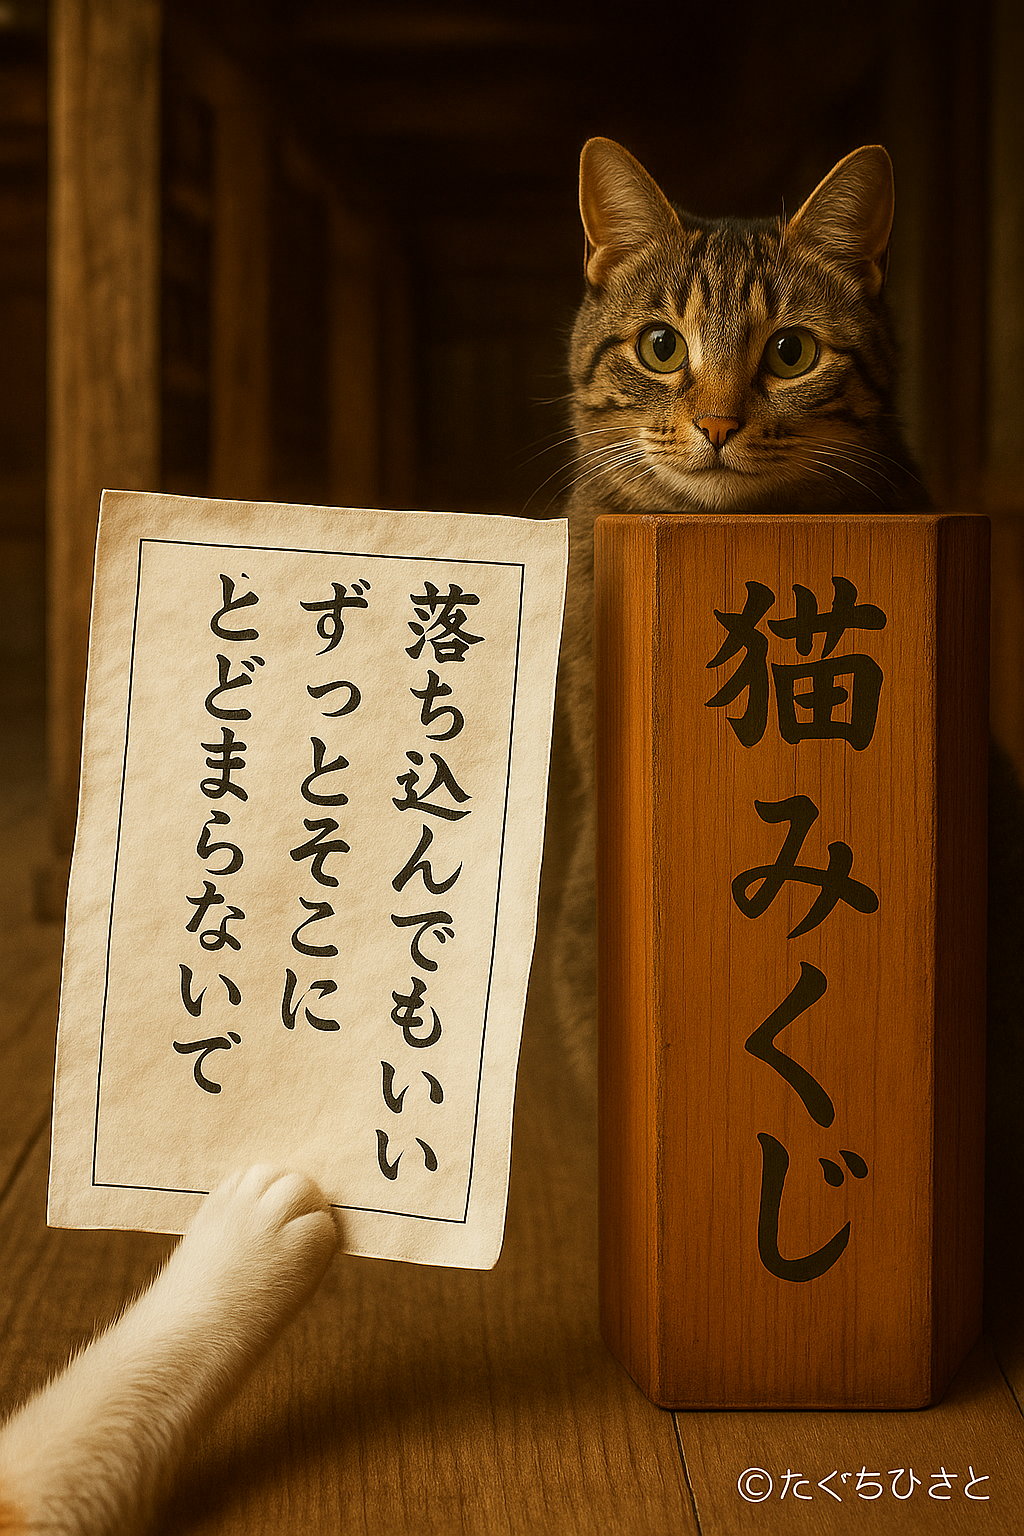 落ち込んでもいい
ずっとそこに
とどまらないで
猫みくじ
©たぐちひさと